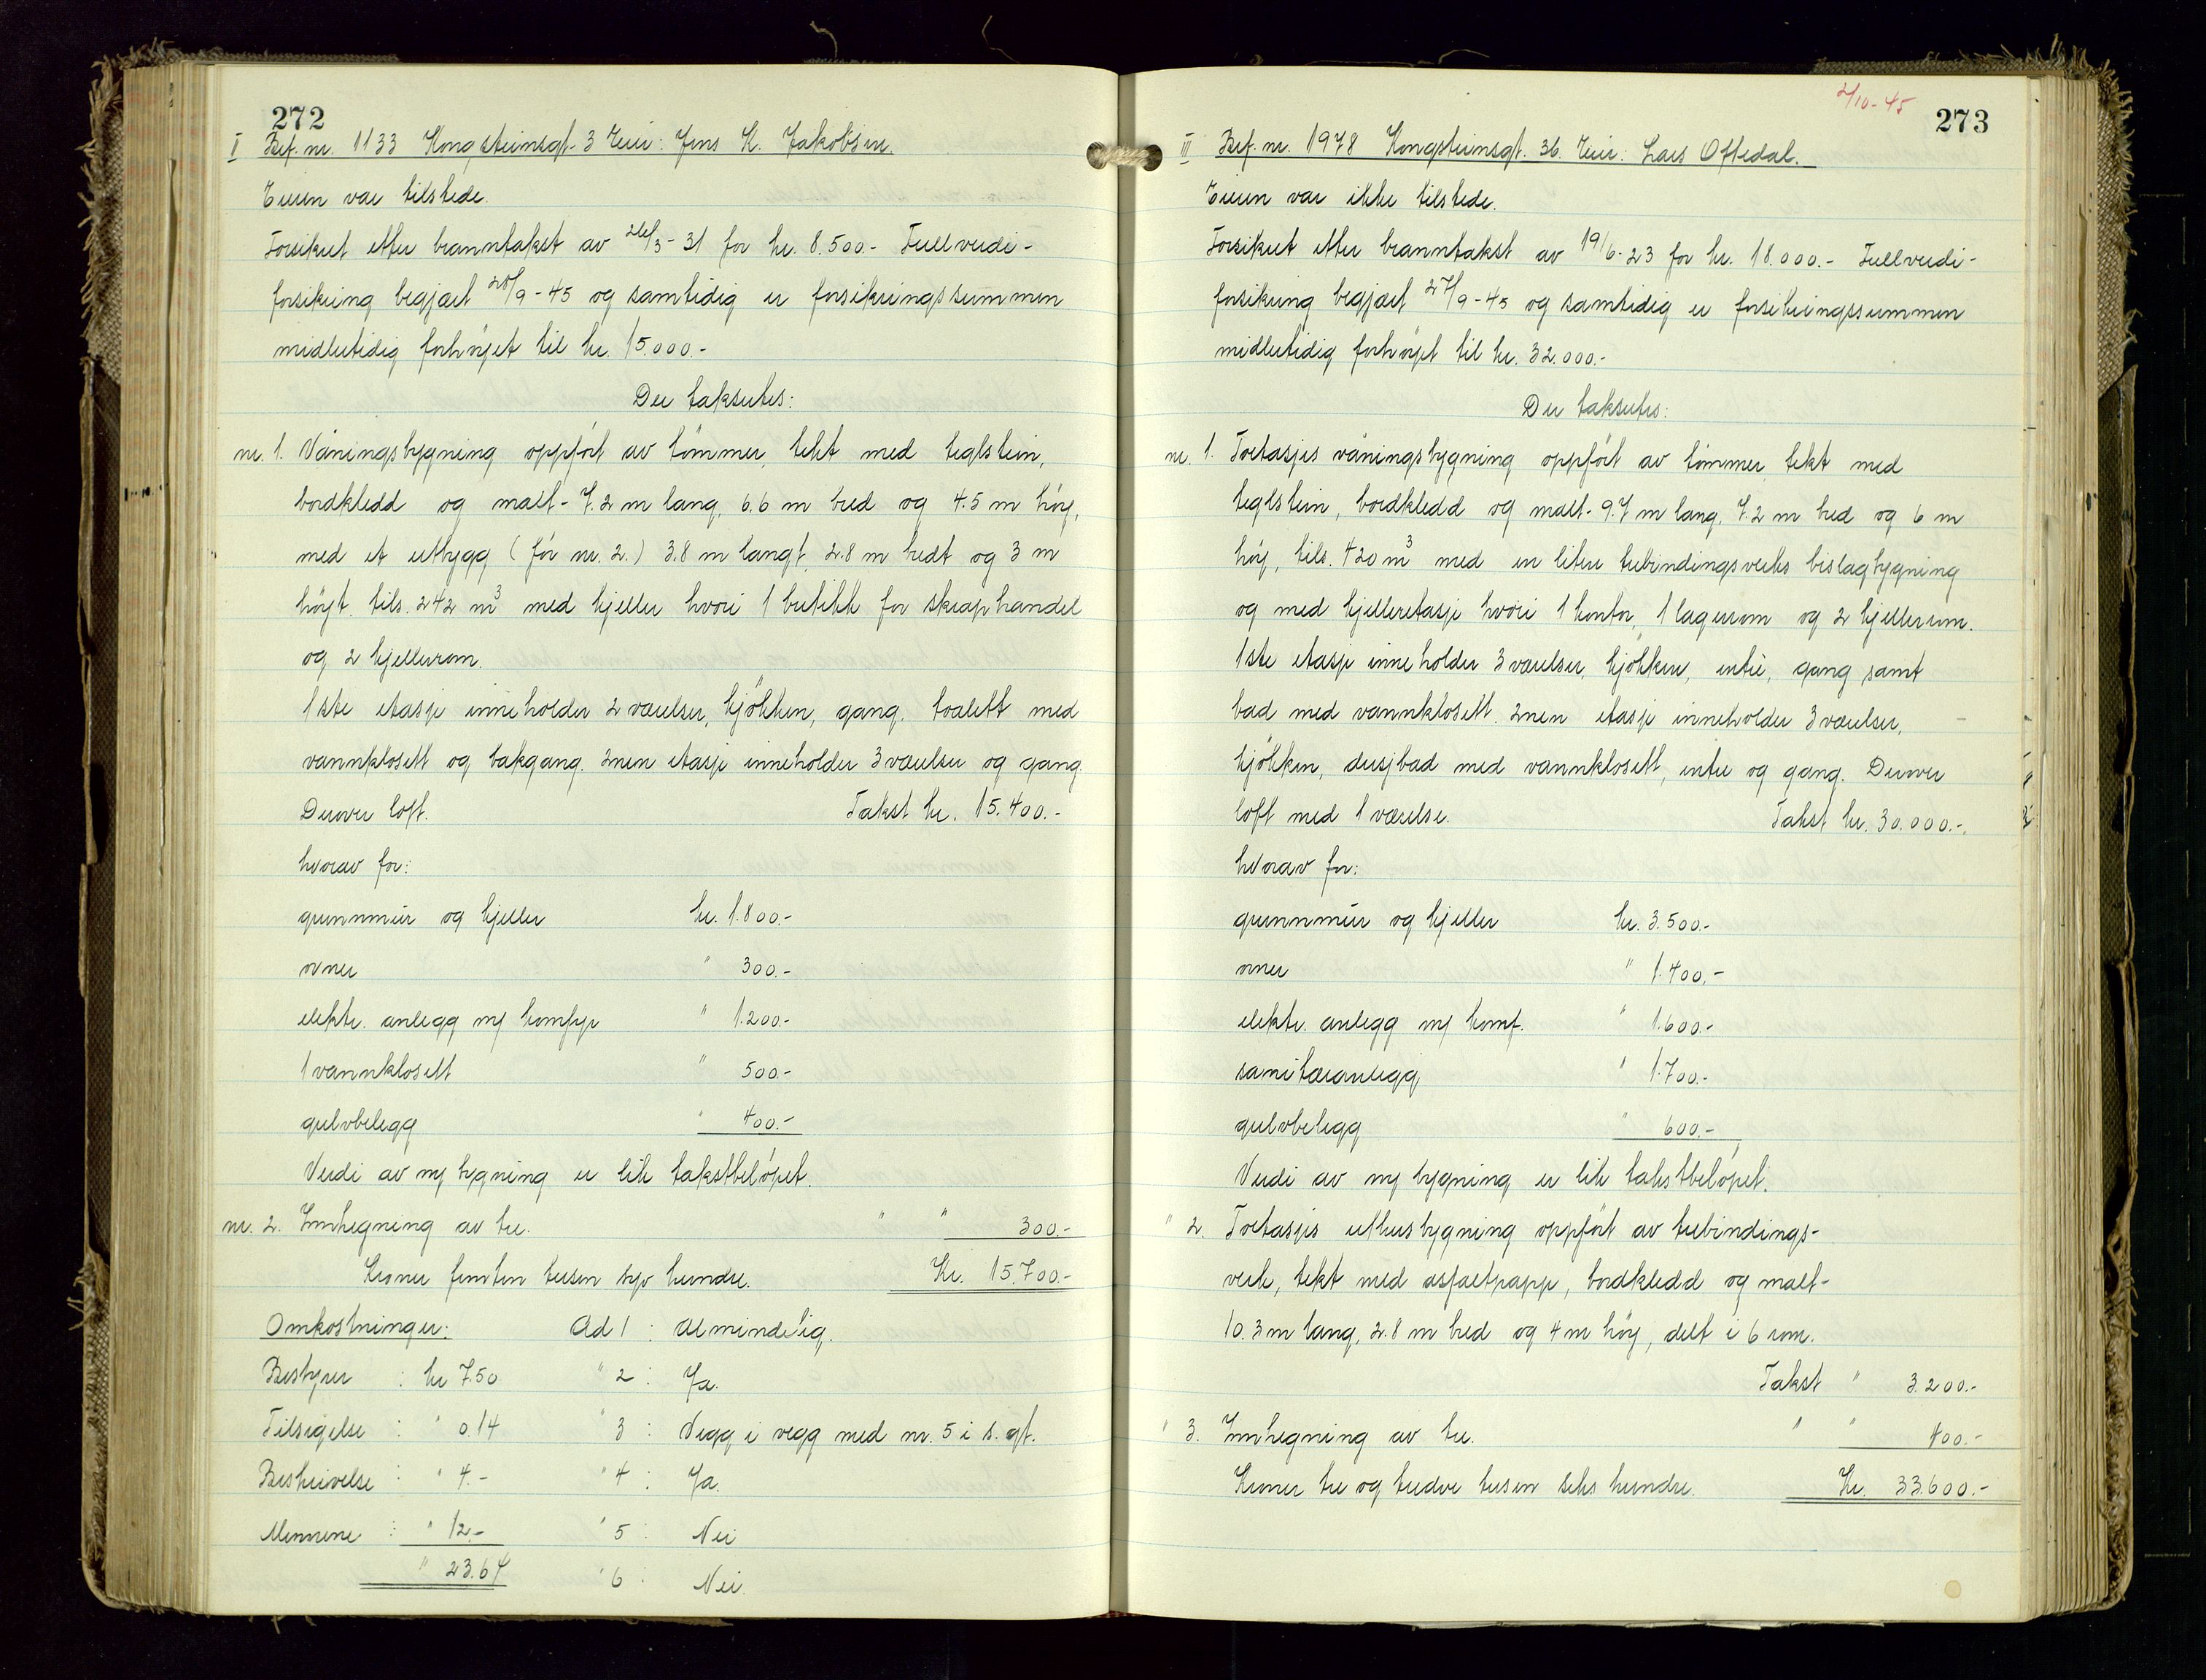 272
I Brf. nr. 1133 Kongsteinsgt. 3 Eier: Jens K. Jakobsen.
Eieren var tilstede.
Forsikret etter branntakst av 26/3-31 for kr. 8.500.- Fullverdi-
forsikring begjært 28/9-45 og samtidig er forsikringssummen
midlertidig forhöyet til kr. 15.000.-
Der takseertes:
nr. 1. Våningsbygning oppfört av tömmer, tekt med teglstein,
bordkledd og malt - 7.2 m lang, 6.6 m bred og 4.5 m höy,
med et utbygg (för nr. 2.) 3.8 m langt, 2.8 m bredt og 3 m
höyt. tils. 242 m³ med kjeller hvori 1 butikk for skraphandel
og 2 kjellerrom.
1ste etasje inneholder 2 værelser, kjökken, gang, toalett med
vannklosett og bakgang. 2nen etasje inneholder 3 værelser og gang.
Derover loft. Takst kr. 15.400.-
hvorav for:
grunnmur og kjeller kr. 1.800.-
ovner " 300.-
elektr. anlegg m/ komfyr " 1.200.-
1 vannklosett " 500.-
gulvbelegg " 400.-
Verdi av ny bygning er lik takstbelöpet.
nr. 2. Innhegning av tre. " " 300.-
Kroner femten tusen syv hundre. Kr. 15.700.-
Omkostninger: Ad 1 : Almindelig.
Bestyrer : kr 7.50 " 2 : Ja.
Tilsigelse : " 0.14 " 3 : Vegg i vegg med nr. 5 i s. gt.
Beskrivelse : " 4.- " 4 : Ja.
Mennene : " 12.- " 5 : Nei
" 23.64 " 6 : Nei.
2/10-45
273
III Brf. nr. 1978 Kongsteinsgt. 36. Eier: Lars Oftedal.
Eieren var ikke tilstede.
Forsikret etter branntakst av 19/6-23 for kr. 18.000.- Fullverdi-
forsikring begjært 27/9-45 og samtidig er forsikringssummen
midlertidig forhöyet til kr. 32.000.-
Der takseertes:
nr. 1. Toetasjes våningsbygning oppfört av tömmer, tekt med
teglstein, bordkledd og malt - 9.7 m lang, 7.2 m bred og 6 m
höy, tils. 420 m³ med en liten trebindingsverks bislagbygning
og med kjelleretasje hvori 1 kontor, 1 lagerrom og 2 kjellerrom.
1ste etasje inneholder 3 værelser, kjökken, entré, gang samt
bad med vannklosett. 2nen etasje inneholder 3 værelser,
kjökken, dusjbad med vannklosett, entre og gang. Derover
loft med 1 værelse. Takst kr. 30.000.-
hvorav for:
grunnmur og kjeller kr. 3.500.-
ovner " 1.400.-
elektr. anlegg m/ komf. " 1.600.-
sanitæranlegg " 1.700.-
gulvbelegg " 600.-
Verdi av ny bygning er lik takstbelöpet.
" 2. Toetasjes uthusbygning oppfört av trebindings-
verk, tekt med asfaltpapp, bordkledd og malt -
10.3 m lang, 2.8 m bred og 4 m höy, delt i 6 rom.
Takst " 3.200.-
" 3. Innhegning av tre. " " 400.-
Kroner tre og tredve tusen seks hundre. Kr. 33.600.-